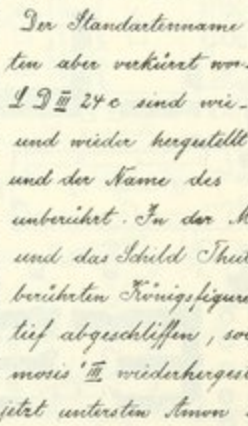 Der Standartenname
ten aber verkürzt wor-
L D III 24 c sind wie-
und wieder hergestellt
und der Name des
unberührt. In der
und das Schild Thut
berührten Königsfigure
tief abgeschliffen, so
mosis' III wiederherges
jetzt untersten Amon